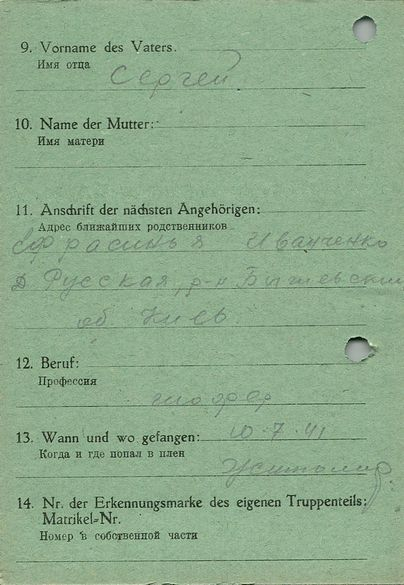 9. Vorname des Vaters.
Имя отца
Сергей
10. Name der Mutter:
Имя матери
11. Anschrift der nächsten Angehörigen:
Адрес ближайших родственников
Ефрасинья Иванченко
д Русская, р-н Бышевский
об. Киев.
12. Beruf:
Профессия
шофер
13. Wann und wo gefangen: 10.7.41
Когда и где попал в плен
14. Nr. der Erkennungsmarke des eigenen Truppenteils:
Matrikel=Nr.
Номер в собственной части